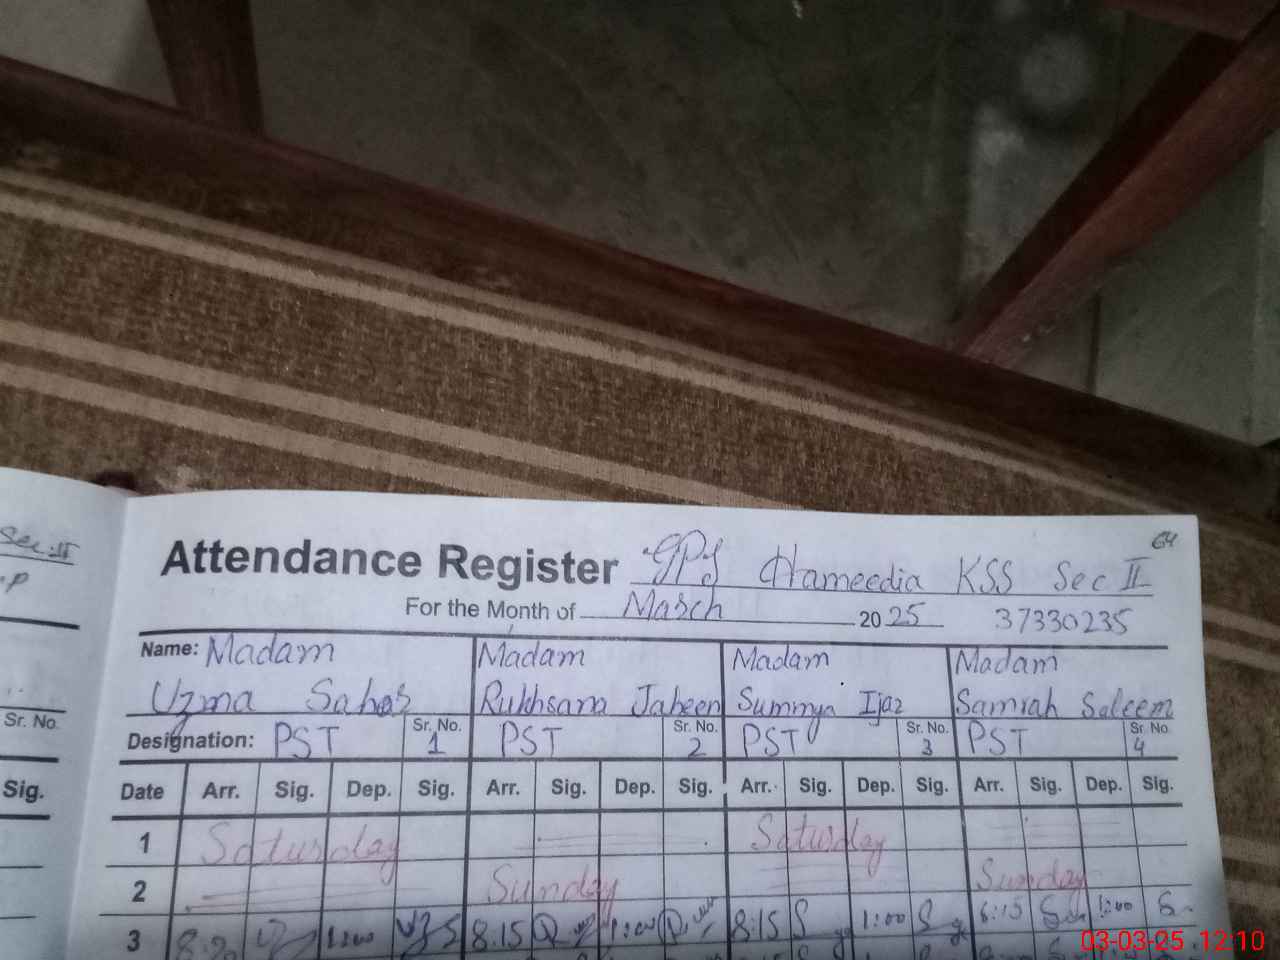 Sec:II
.P
64
Attendance Register GPS Hameedia KSS Sec II
For the Month of March 2025 37330235
Name: Madam Madam Madam Madam
Uzma Sahar Rukhsana Jabeen Summya Ijaz Samiah Saleem
Sr. No. Designation: PST Sr. No. 1 PST Sr. No. 2 PST Sr. No. 3 PST Sr. No. 4
Sig. Date Arr. Sig. Dep. Sig. Arr. Sig. Dep. Sig. Arr. Sig. Dep. Sig. Arr. Sig. Dep. Sig.
1 Saturday Saturday
2 Sunday Sunday
3 1:00 8:15 1:00 8:15 1:00 1:00
03-03-25 12:10